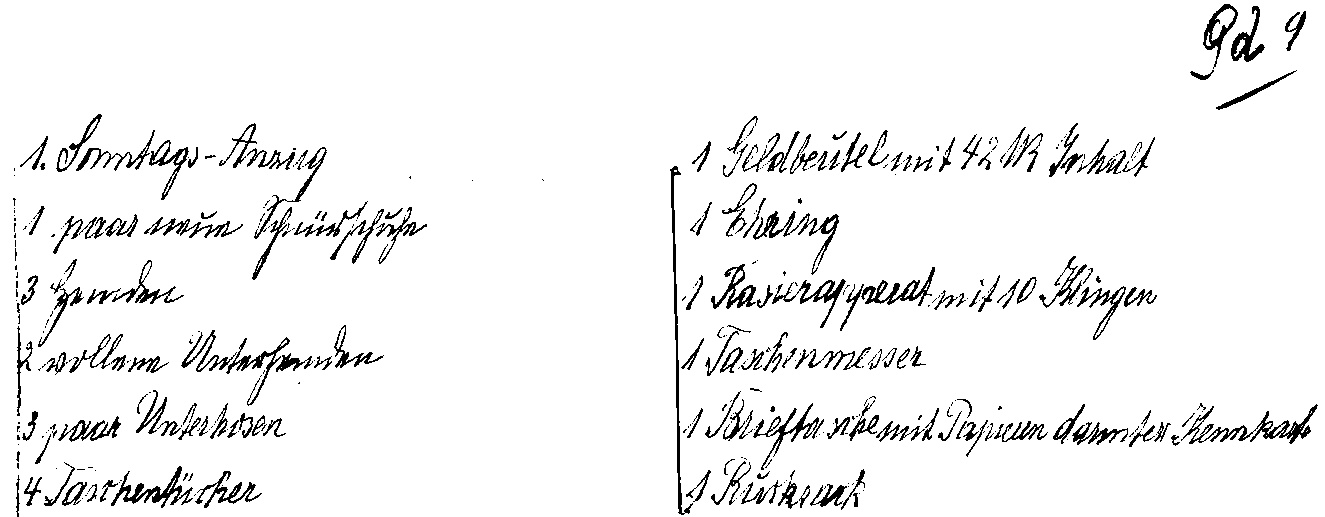 Gd 9
1. Sonntags-Anzug
1 paar neue Schnürschuhe
3 Hemden
2 wollene Unterhemden
3 paar Unterhosen
4 Taschentücher
1 Geldbeutel mit 42 M Inhalt
1 Ehring
1 Rasierapparat mit 10 Klingen
1 Taschenmesser
1 Brieftasche mit Papieren darunter Kennkarte
1 Rucksack